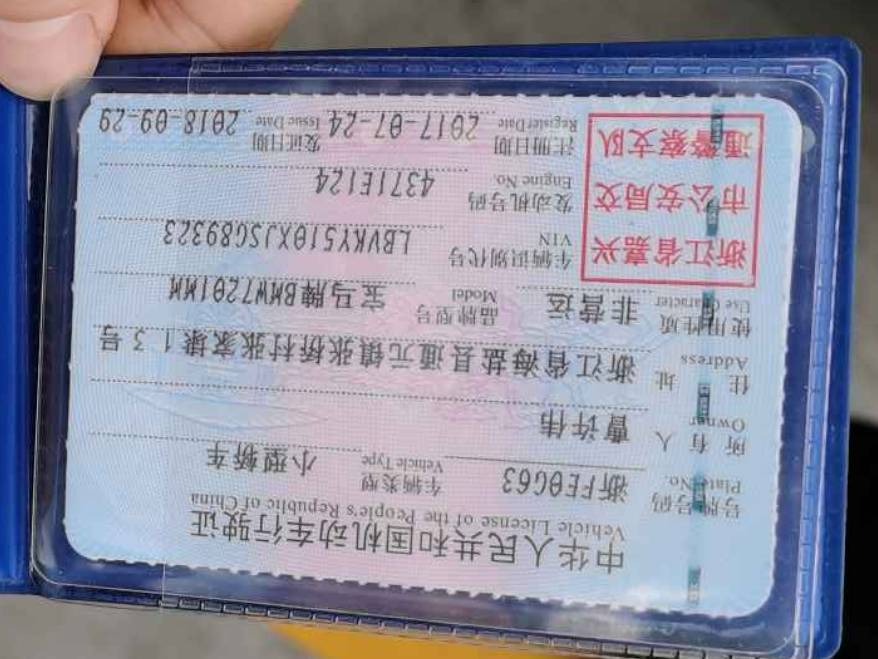 中华人民共和国机动车行驶证
Vehicle License of the People's Republic of China
号牌号码 浙FE0G63 车辆类型 小型轿车
Plate No. Vehicle Type
所有人 曹许伟
Owner
住址 浙江省海盐县通元镇张桥村张家埭13号
Address
使用性质 非营运 品牌型号 宝马牌BMW7201MM
Use Character Model
浙江省嘉兴
市公安局交
通警察支队
车辆识别代号 LBVKY510XJSG89323
VIN
发动机号码 4371E124
Engine No.
注册日期 2017-07-24 发证日期 2018-09-29
Register Date Issue Date